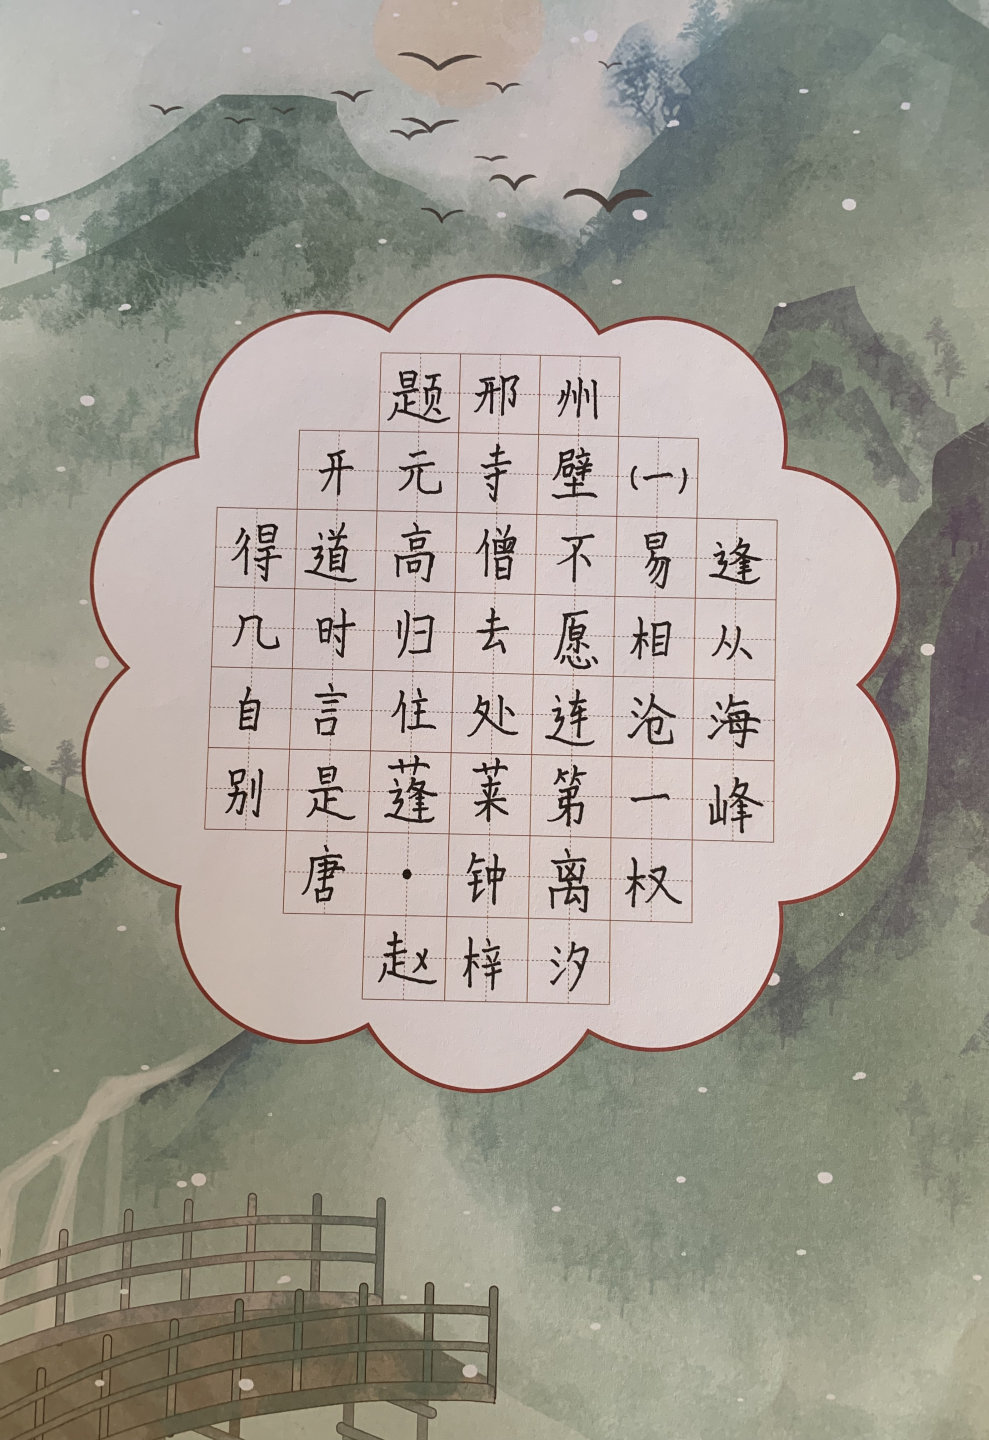 题邢州
开元寺壁(一)
得道高僧不易逢
几时归去愿相从
自言住处连沧海
别是蓬莱第一峰
唐·钟离权
赵梓汐